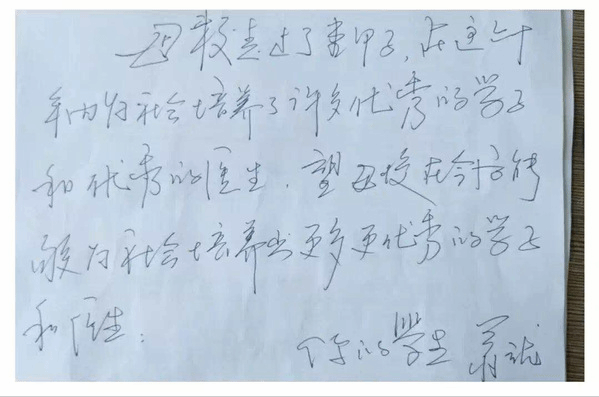 母校走过了壹甲子,在这六十
年内为社会培养了许多优秀的学子
和优秀的医生。望母校在今后能
够为社会培养出更多更优秀的学子
和医生:
你的學生